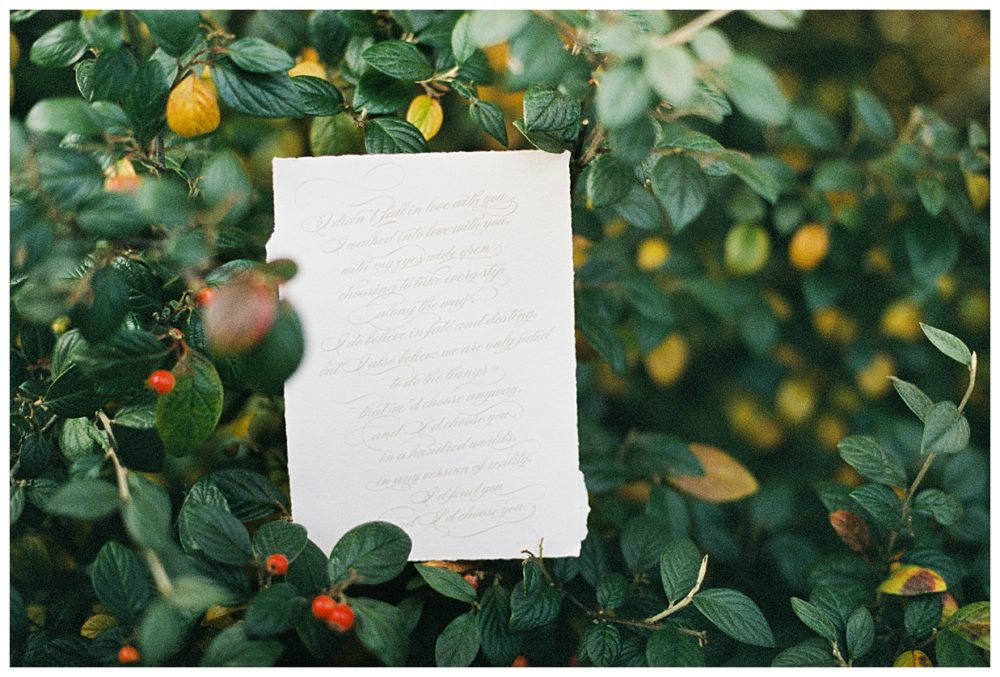 I didn't fall in love with you,
I walked into love with you,
with my eyes wide open
choosing to take every step
along the way.
I do believe in fate and destiny,
but I also believe we are only fated
to do the things
that we'd choose anyway,
and I'd choose you,
in a hundred worlds,
in any version of reality,
I'd find you
and I'd choose you